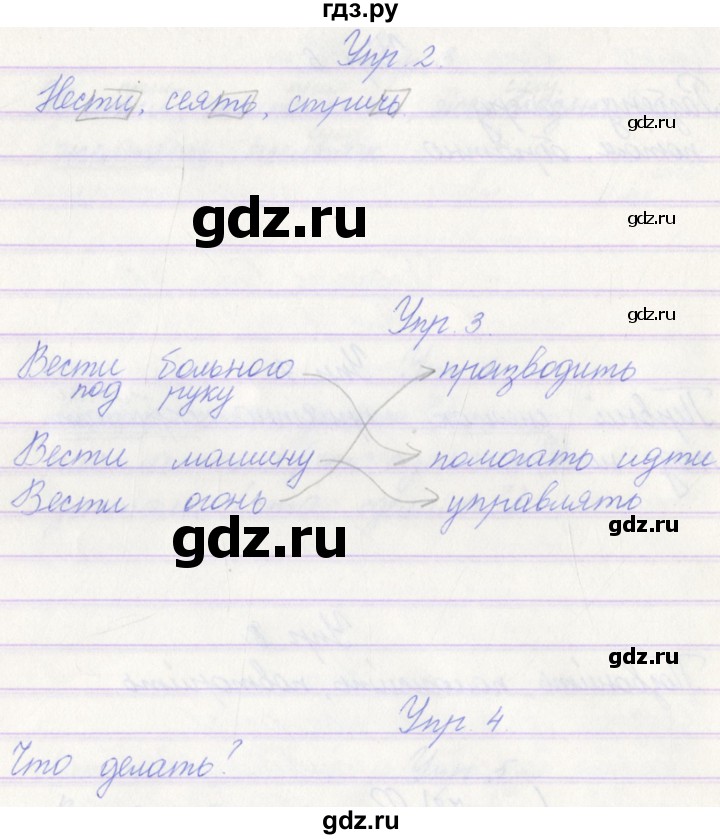 гдз.ру
Упр. 2.
Нести, сеять, стричь.
gdz.ru
gdz.ru
gdz.ru
Упр. 3.
gdz.ru
Вести больного
под руку
празводить
Вести машину
помогать идти
Вести огонь
управлять
gdz.ru
gdz.ru
gdz.ru
Упр. 4
Что делать?
gdz.ru
gdz.ru